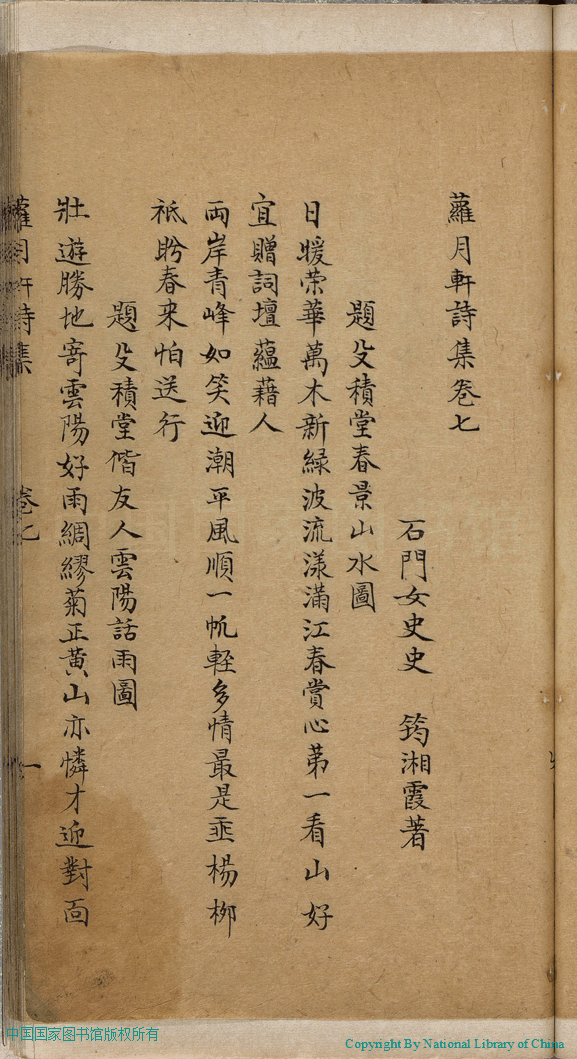 蘿月軒詩集卷七
石門女史史 筠湘霞著
題殳積堂春景山水圖
日暖荣華萬木新緑波流漾滿江春賞心苐一看山好
宜贈詞壇蘊藉人
两岸青峰如笑迎潮平風順一帆輕多情最是垂楊柳
祇盻春来怕送行
題殳積堂偕友人雲陽話雨圖
壯遊勝地寄雲陽好雨綢繆菊正黃山亦憐才迎對面
蘿月軒詩集 卷七 一
中国国家图书馆版权所有
Copyright By National Library of China